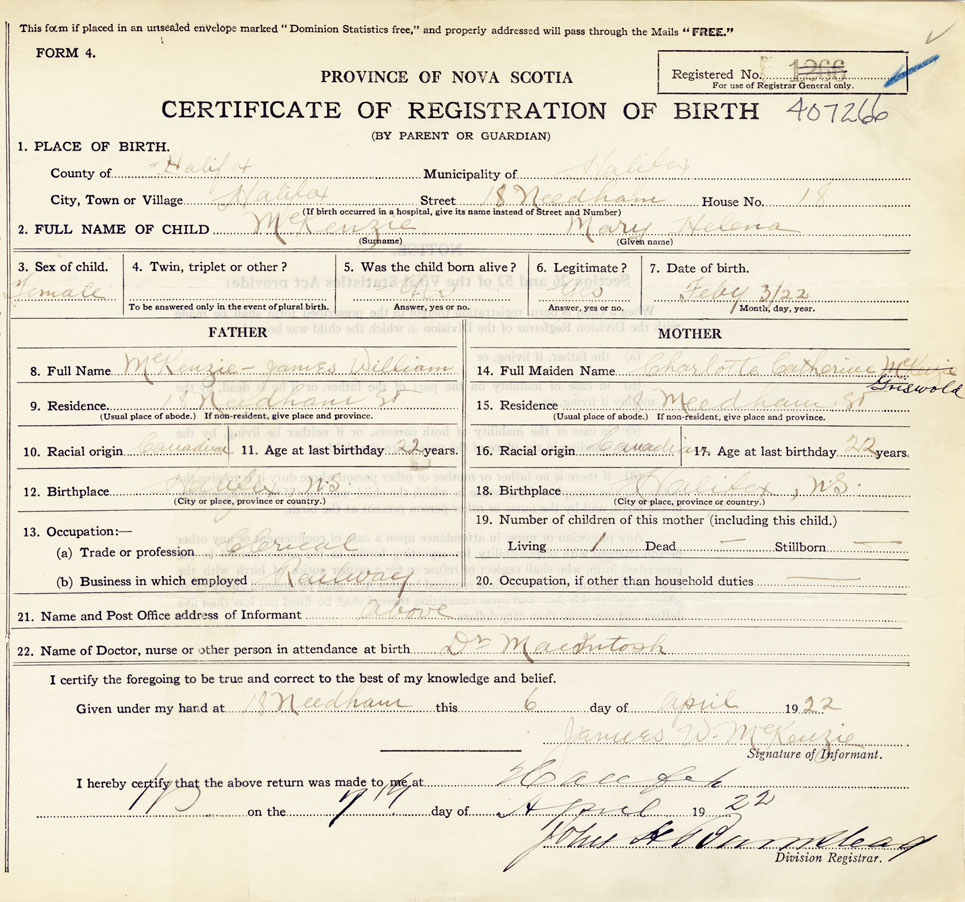 This form if placed in an unsealed envelope marked "Dominion Statistics free," and properly addressed will pass through the Mails "FREE."
FORM 4.
Registered No. 1266
For use of Registrar General only.
PROVINCE OF NOVA SCOTIA
CERTIFICATE OF REGISTRATION OF BIRTH 407266
(BY PARENT OR GUARDIAN)
1. PLACE OF BIRTH.
County of Halifax Municipality of Halifax
City, Town or Village Halifax Street 18 Needham House No. 18
(If birth occurred in a hospital, give its name instead of Street and Number)
2. FULL NAME OF CHILD McKenzie Mary Helena
(Surname) (Given name)
3. Sex of child. 4. Twin, triplet or other? 5. Was the child born alive? 6. Legitimate? 7. Date of birth.
Female Yes Yes Feby 3/22
To be answered only in the event of plural birth. Answer, yes or no. Answer, yes or no. Month, day, year.
FATHER MOTHER
8. Full Name McKenzie - James William 14. Full Maiden Name Charlotte Catherine McKenzie
Griswold
9. Residence 18 Needham St 15. Residence 18 Needham St
(Usual place of abode.) If non-resident, give place and province. (Usual place of abode.) If non-resident, give place and province.
10. Racial origin Canadian 11. Age at last birthday 22 years. 16. Racial origin Canadian 17. Age at last birthday 22 years.
12. Birthplace Halifax, N.S. 18. Birthplace Halifax, N.S.
(City or place, province or country.) (City or place, province or country.)
13. Occupation:— 19. Number of children of this mother (including this child.)
(a) Trade or profession Clerical Living 1 Dead — Stillborn —
(b) Business in which employed Railway 20. Occupation, if other than household duties —
21. Name and Post Office address of Informant above
22. Name of Doctor, nurse or other person in attendance at birth Dr MacIntosh
I certify the foregoing to be true and correct to the best of my knowledge and belief.
Given under my hand at 18 Needham this 6 day of April 1922
James W. McKenzie
Signature of Informant.
I hereby certify that the above return was made to me at Halifax
on the 7th day of April 1922
John H Barnstead
Division Registrar.